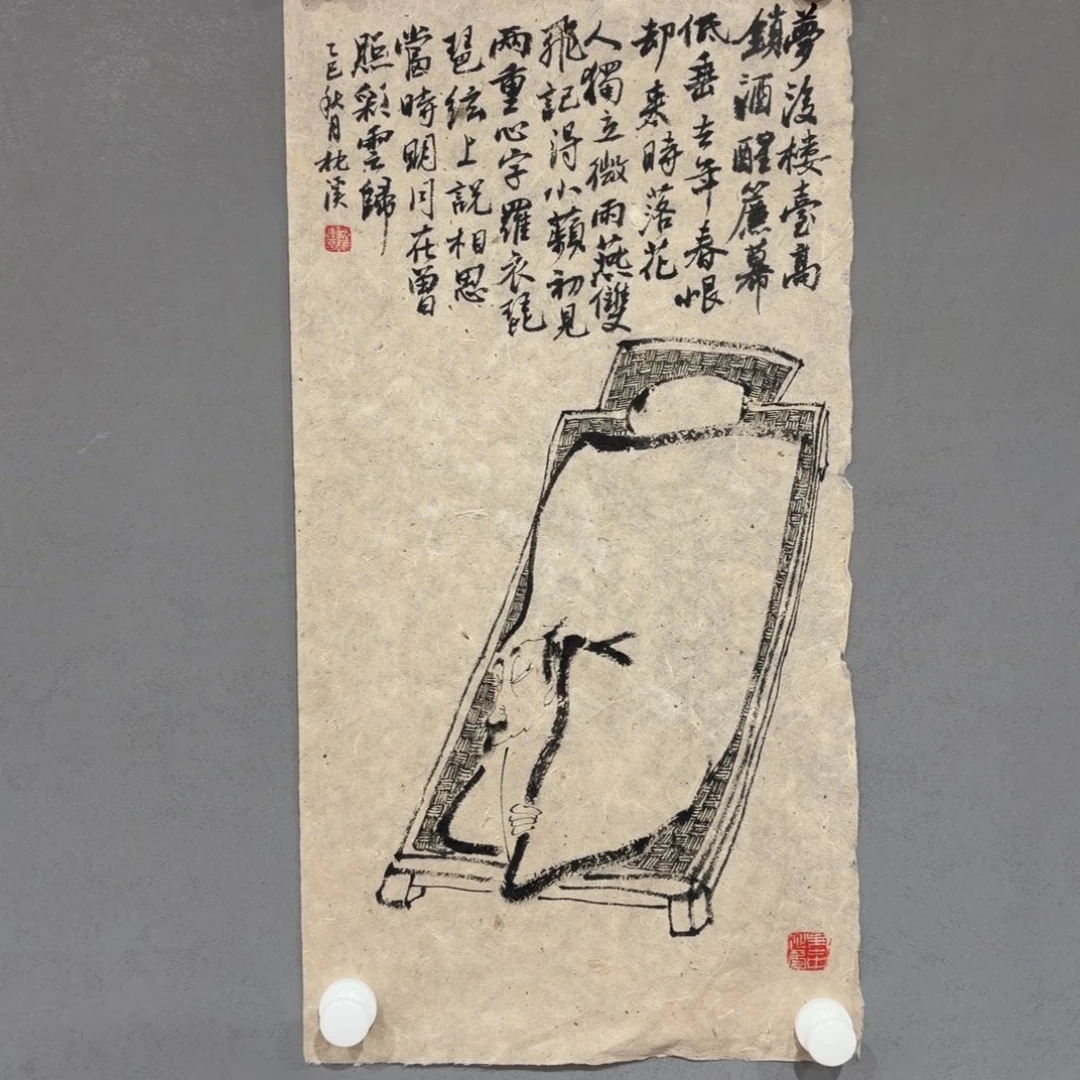 夢後楼臺高
鎖酒醒簾幕
低垂去年春恨
却来時落花
人獨立微雨燕雙
飛記得小蘋初見
两重心字羅衣琵
琶絃上説相思
當時明月在曾
照彩雲歸
乙巳秋月枕溪